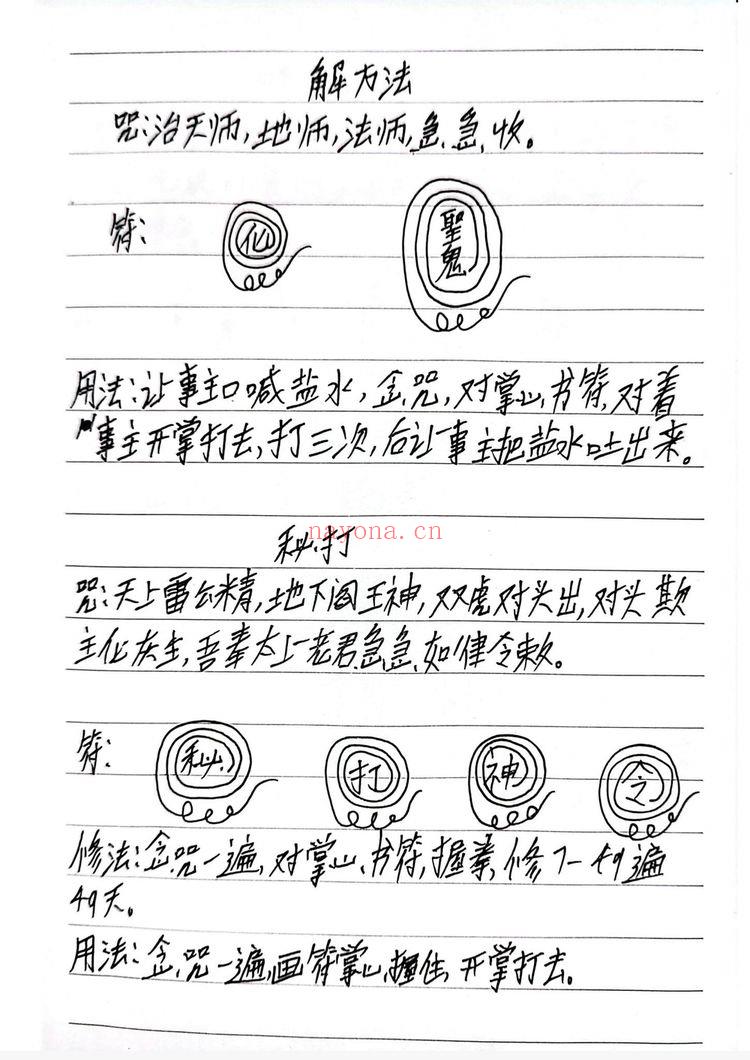 解方法
咒:治天师,地师,法师,急急收。
符: 仙 聖鬼
用法:让事主口喊盐水,念咒,对掌心书符,对着
事主开掌打去,打三次,后让事主把盐水吐出来。
nayona.cn
秘打
咒:天上雷公精,地下阎王神,双虎对头出,对头欺
主化灰生,吾奉太上老君急急如律令敕。
符: 秘 打 神 令
修法:念咒一遍,对掌心书符,握拳,修7一49遍
49天。
用法:念咒一遍,画符掌心,握住,开掌打去。